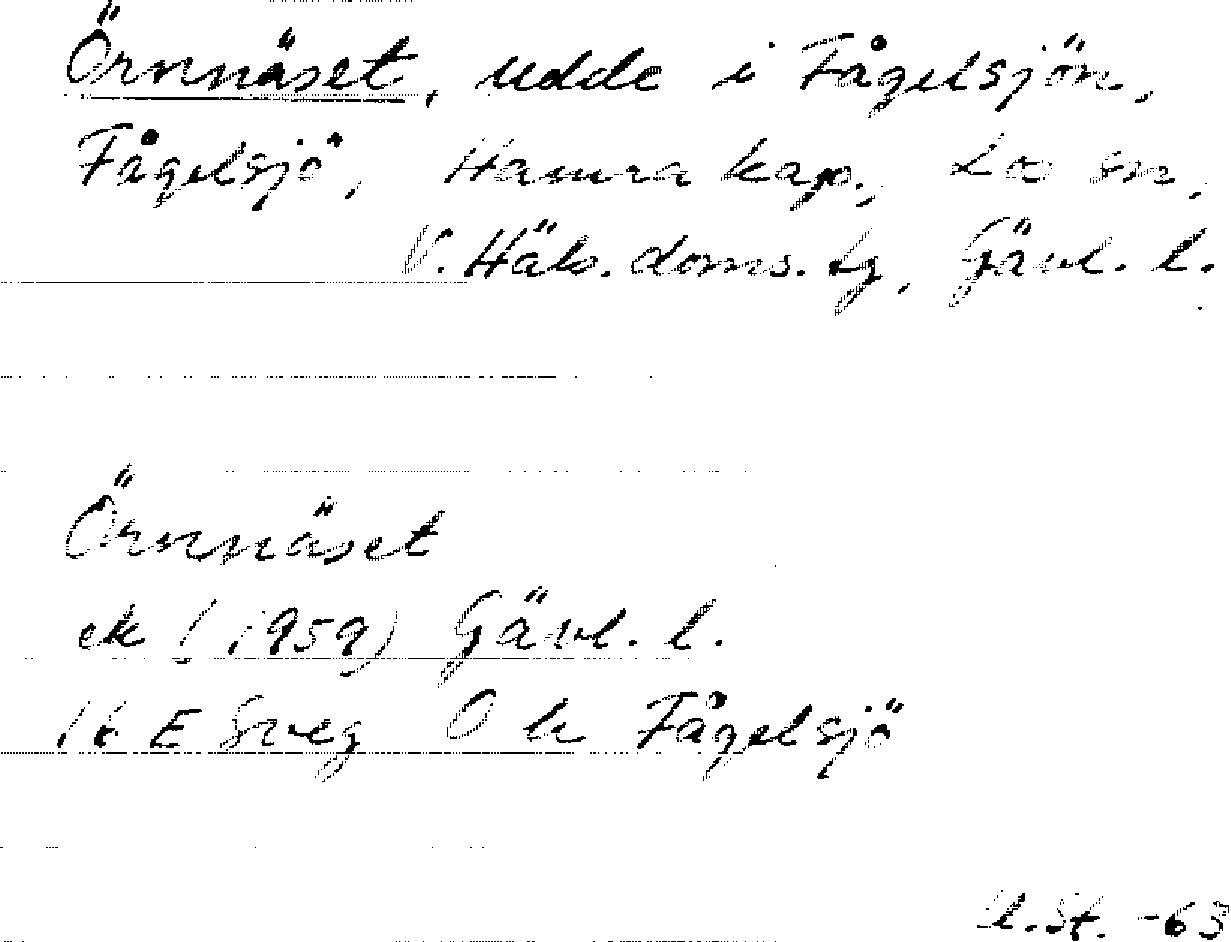 Örnnäset, udde i Fågelsjön,
Fågelsjö, Hamra kap., Loo sn,
V. Häls. doms. tg, Gävl. l.
Örnnäset
ek (1959) Gävl. l.
16 E Sveg O h Fågelsjö
St. -63